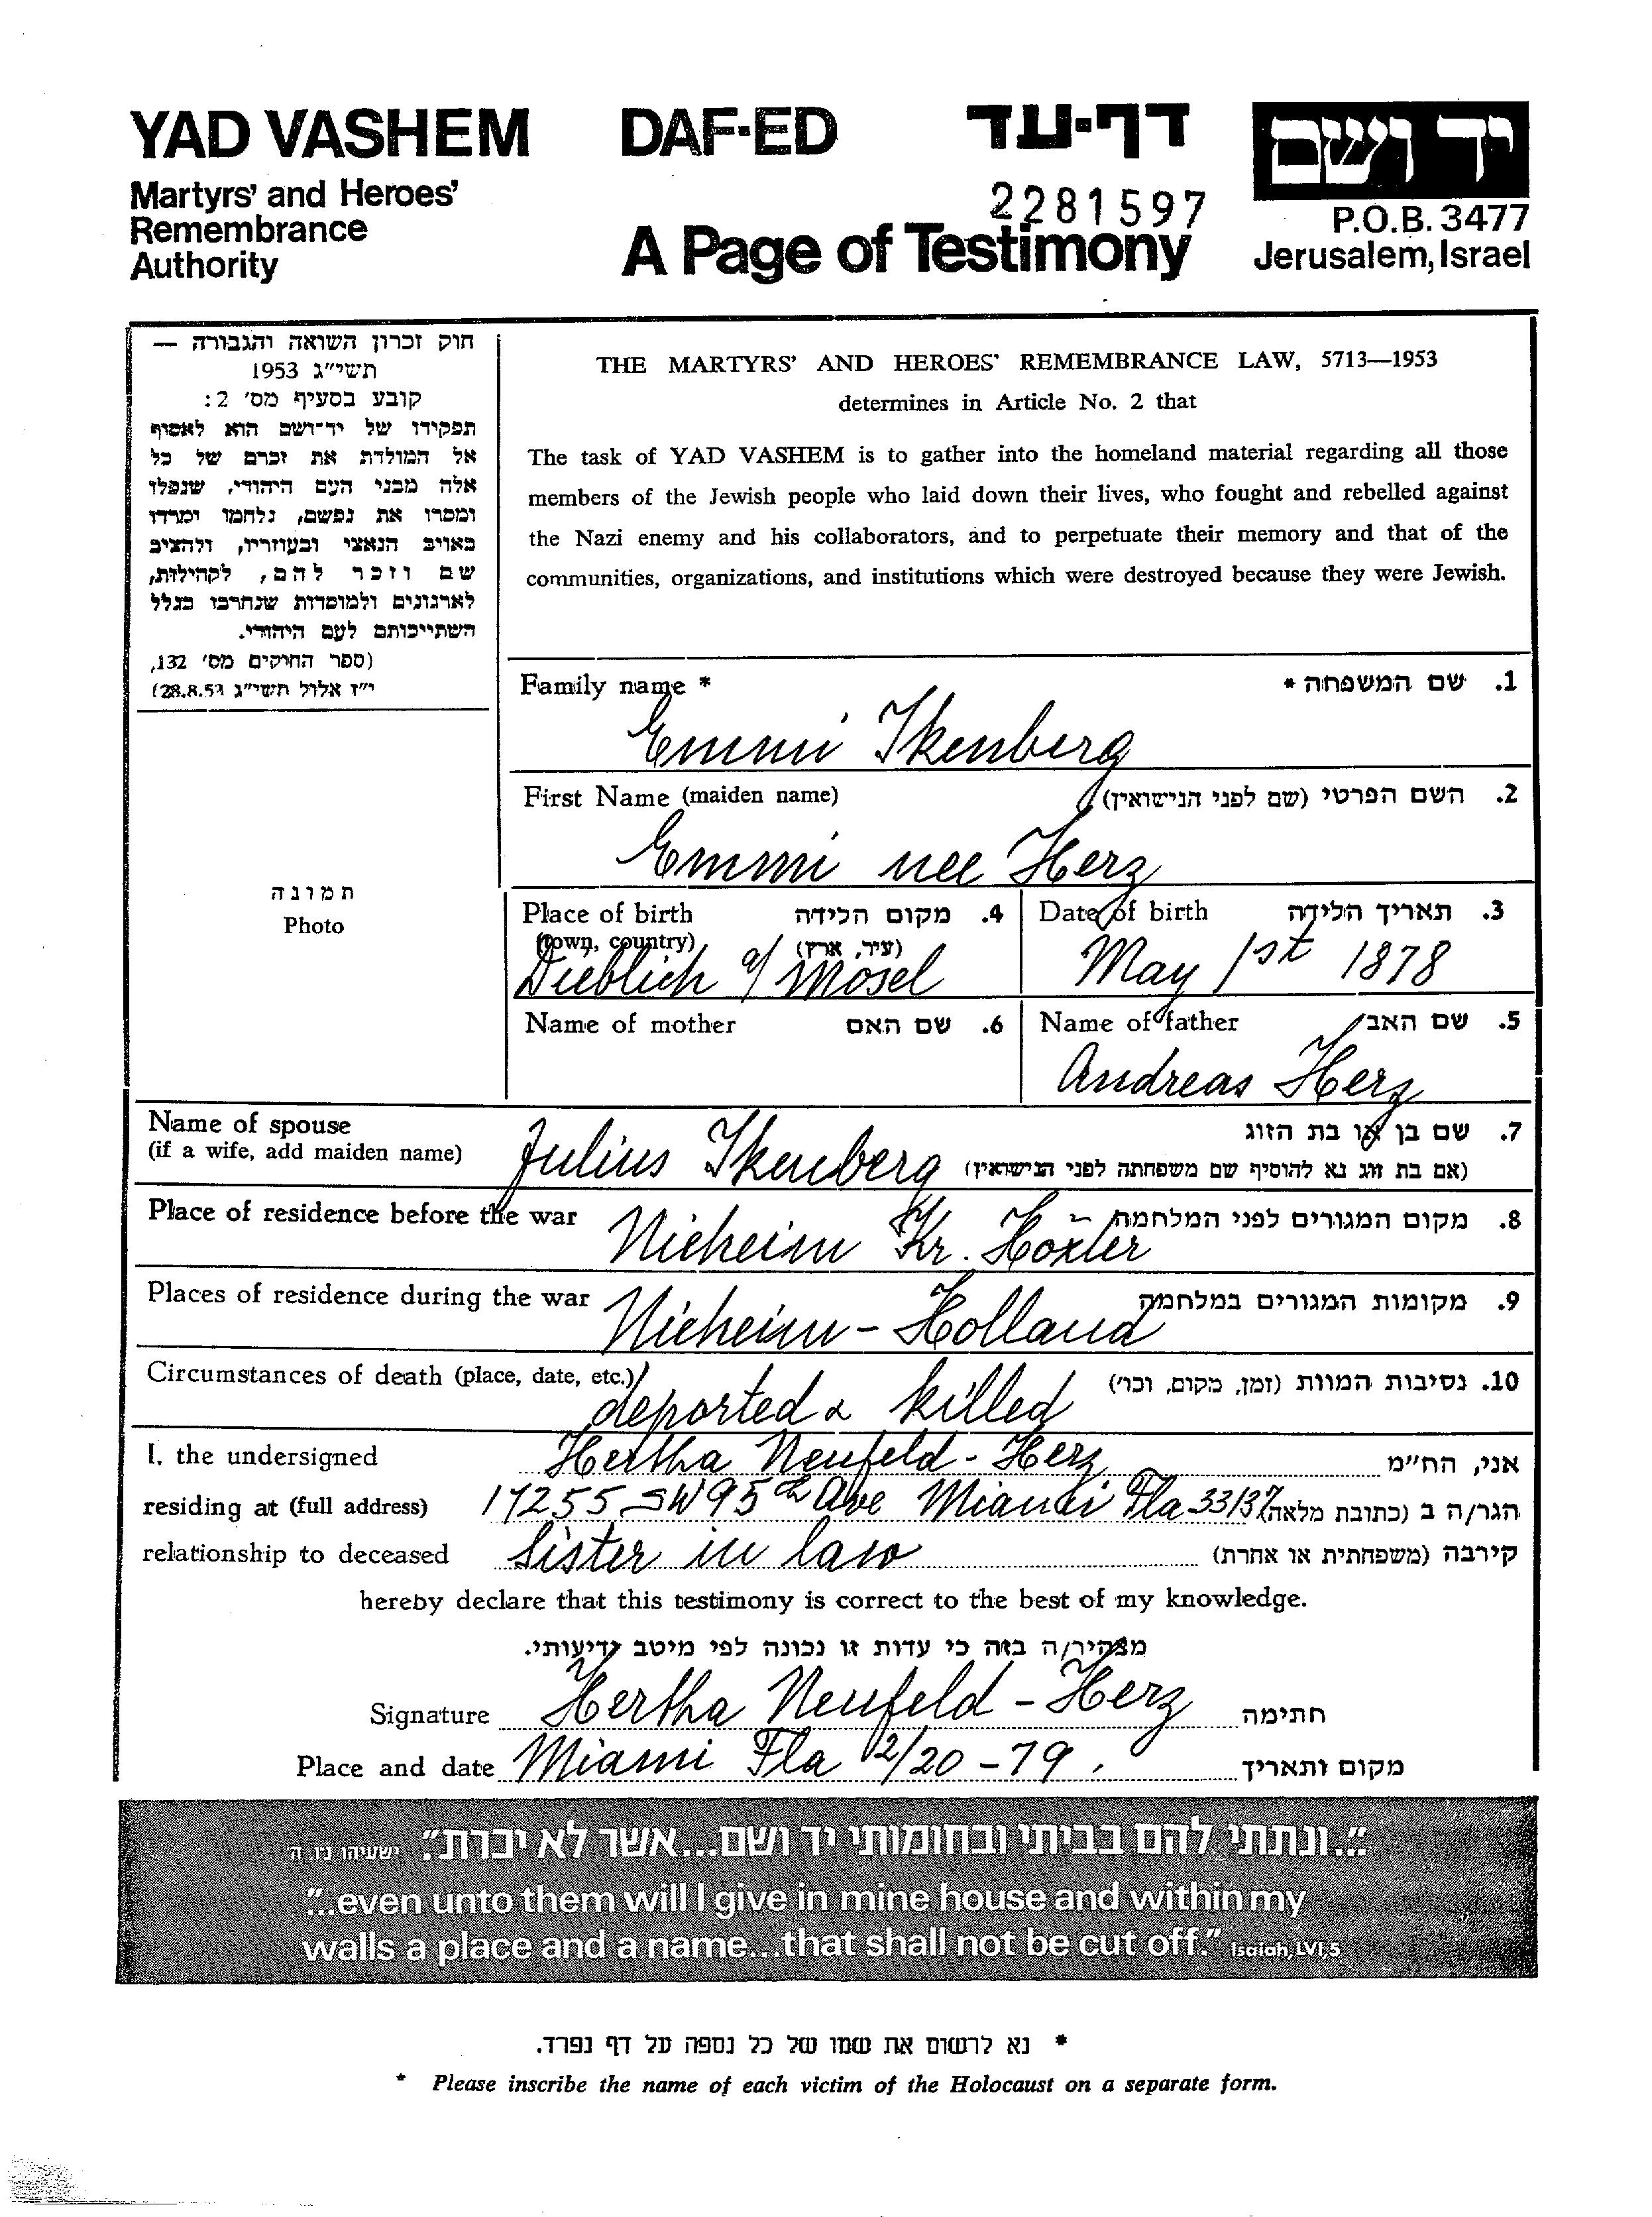 YAD VASHEM DAF-ED דף-עד יד ושם
Martyrs' and Heroes'
Remembrance
Authority
2281597
A Page of Testimony
P.O.B. 3477
Jerusalem, Israel
חוק זכרון השואה והגבורה —
תשי"ג 1953
קובע בסעיף מס' 2:
תפקידו של יד־ושם הוא לאסוף
אל המולדת את זכרם של כל
אלה מבני העם היהודי, שנפלו
ומסרו את נפשם, נלחמו ומרדו
באויב הנאצי ובעוזריו, ולהציב
שם וזכר להם, לקהילות,
לארגונים ולמוסדות שנחרבו בגלל
השתייכותם לעם היהודי.
(ספר החוקים מס' 132,
י"ז אלול תשי"ג 28.8.53)
THE MARTYRS' AND HEROES' REMEMBRANCE LAW, 5713—1953
determines in Article No. 2 that
The task of YAD VASHEM is to gather into the homeland material regarding all those
members of the Jewish people who laid down their lives, who fought and rebelled against
the Nazi enemy and his collaborators, and to perpetuate their memory and that of the
communities, organizations, and institutions which were destroyed because they were Jewish.
Family name * 1. שם המשפחה *
Emmi Ikenberg
First Name (maiden name) 2. השם הפרטי (שם לפני הנישואין)
Emmi nee Herz
תמונה
Photo
Place of birth 4. מקום הלידה
(town, country) (עיר, ארץ)
Dieblich a/ Mosel
Date of birth 3. תאריך הלידה
May 1st 1878
Name of mother 6. שם האם
Name of father 5. שם האב
Andreas Herz
Name of spouse 7. שם בן או בת הזוג
(if a wife, add maiden name) Julius Ikenberg (אם בת זוג נא להוסיף שם משפחתה לפני הנישואין)
Place of residence before the war 8. מקום המגורים לפני המלחמה
Nieheim Kr. Hoxter
Places of residence during the war 9. מקומות המגורים במלחמה
Nieheim - Holland
Circumstances of death (place, date, etc.) 10. נסיבות המוות (זמן, מקום, וכו')
deported & killed
I, the undersigned Hertha Neufeld - Herz אני, הח"מ
residing at (full address) 17255 SW 95th Ave Miami Fla 33137 הגר/ה ב (כתובת מלאה)
relationship to deceased Sister in law קירבה (משפחתית או אחרת)
hereby declare that this testimony is correct to the best of my knowledge.
מצהיר/ה בזה כי עדות זו נכונה לפי מיטב ידיעותי.
Signature Hertha Neufeld - Herz חתימה
Place and date Miami Fla 12/20 - 79. מקום ותאריך
"...ונתתי להם בביתי ובחומותי יד ושם...אשר לא יכרת." ישעיהו נו, ה
"...even unto them will I give in mine house and within my
walls a place and a name...that shall not be cut off." Isaiah, LVI,5
* נא לרשום את שמו של כל נספה על דף נפרד.
* Please inscribe the name of each victim of the Holocaust on a separate form.